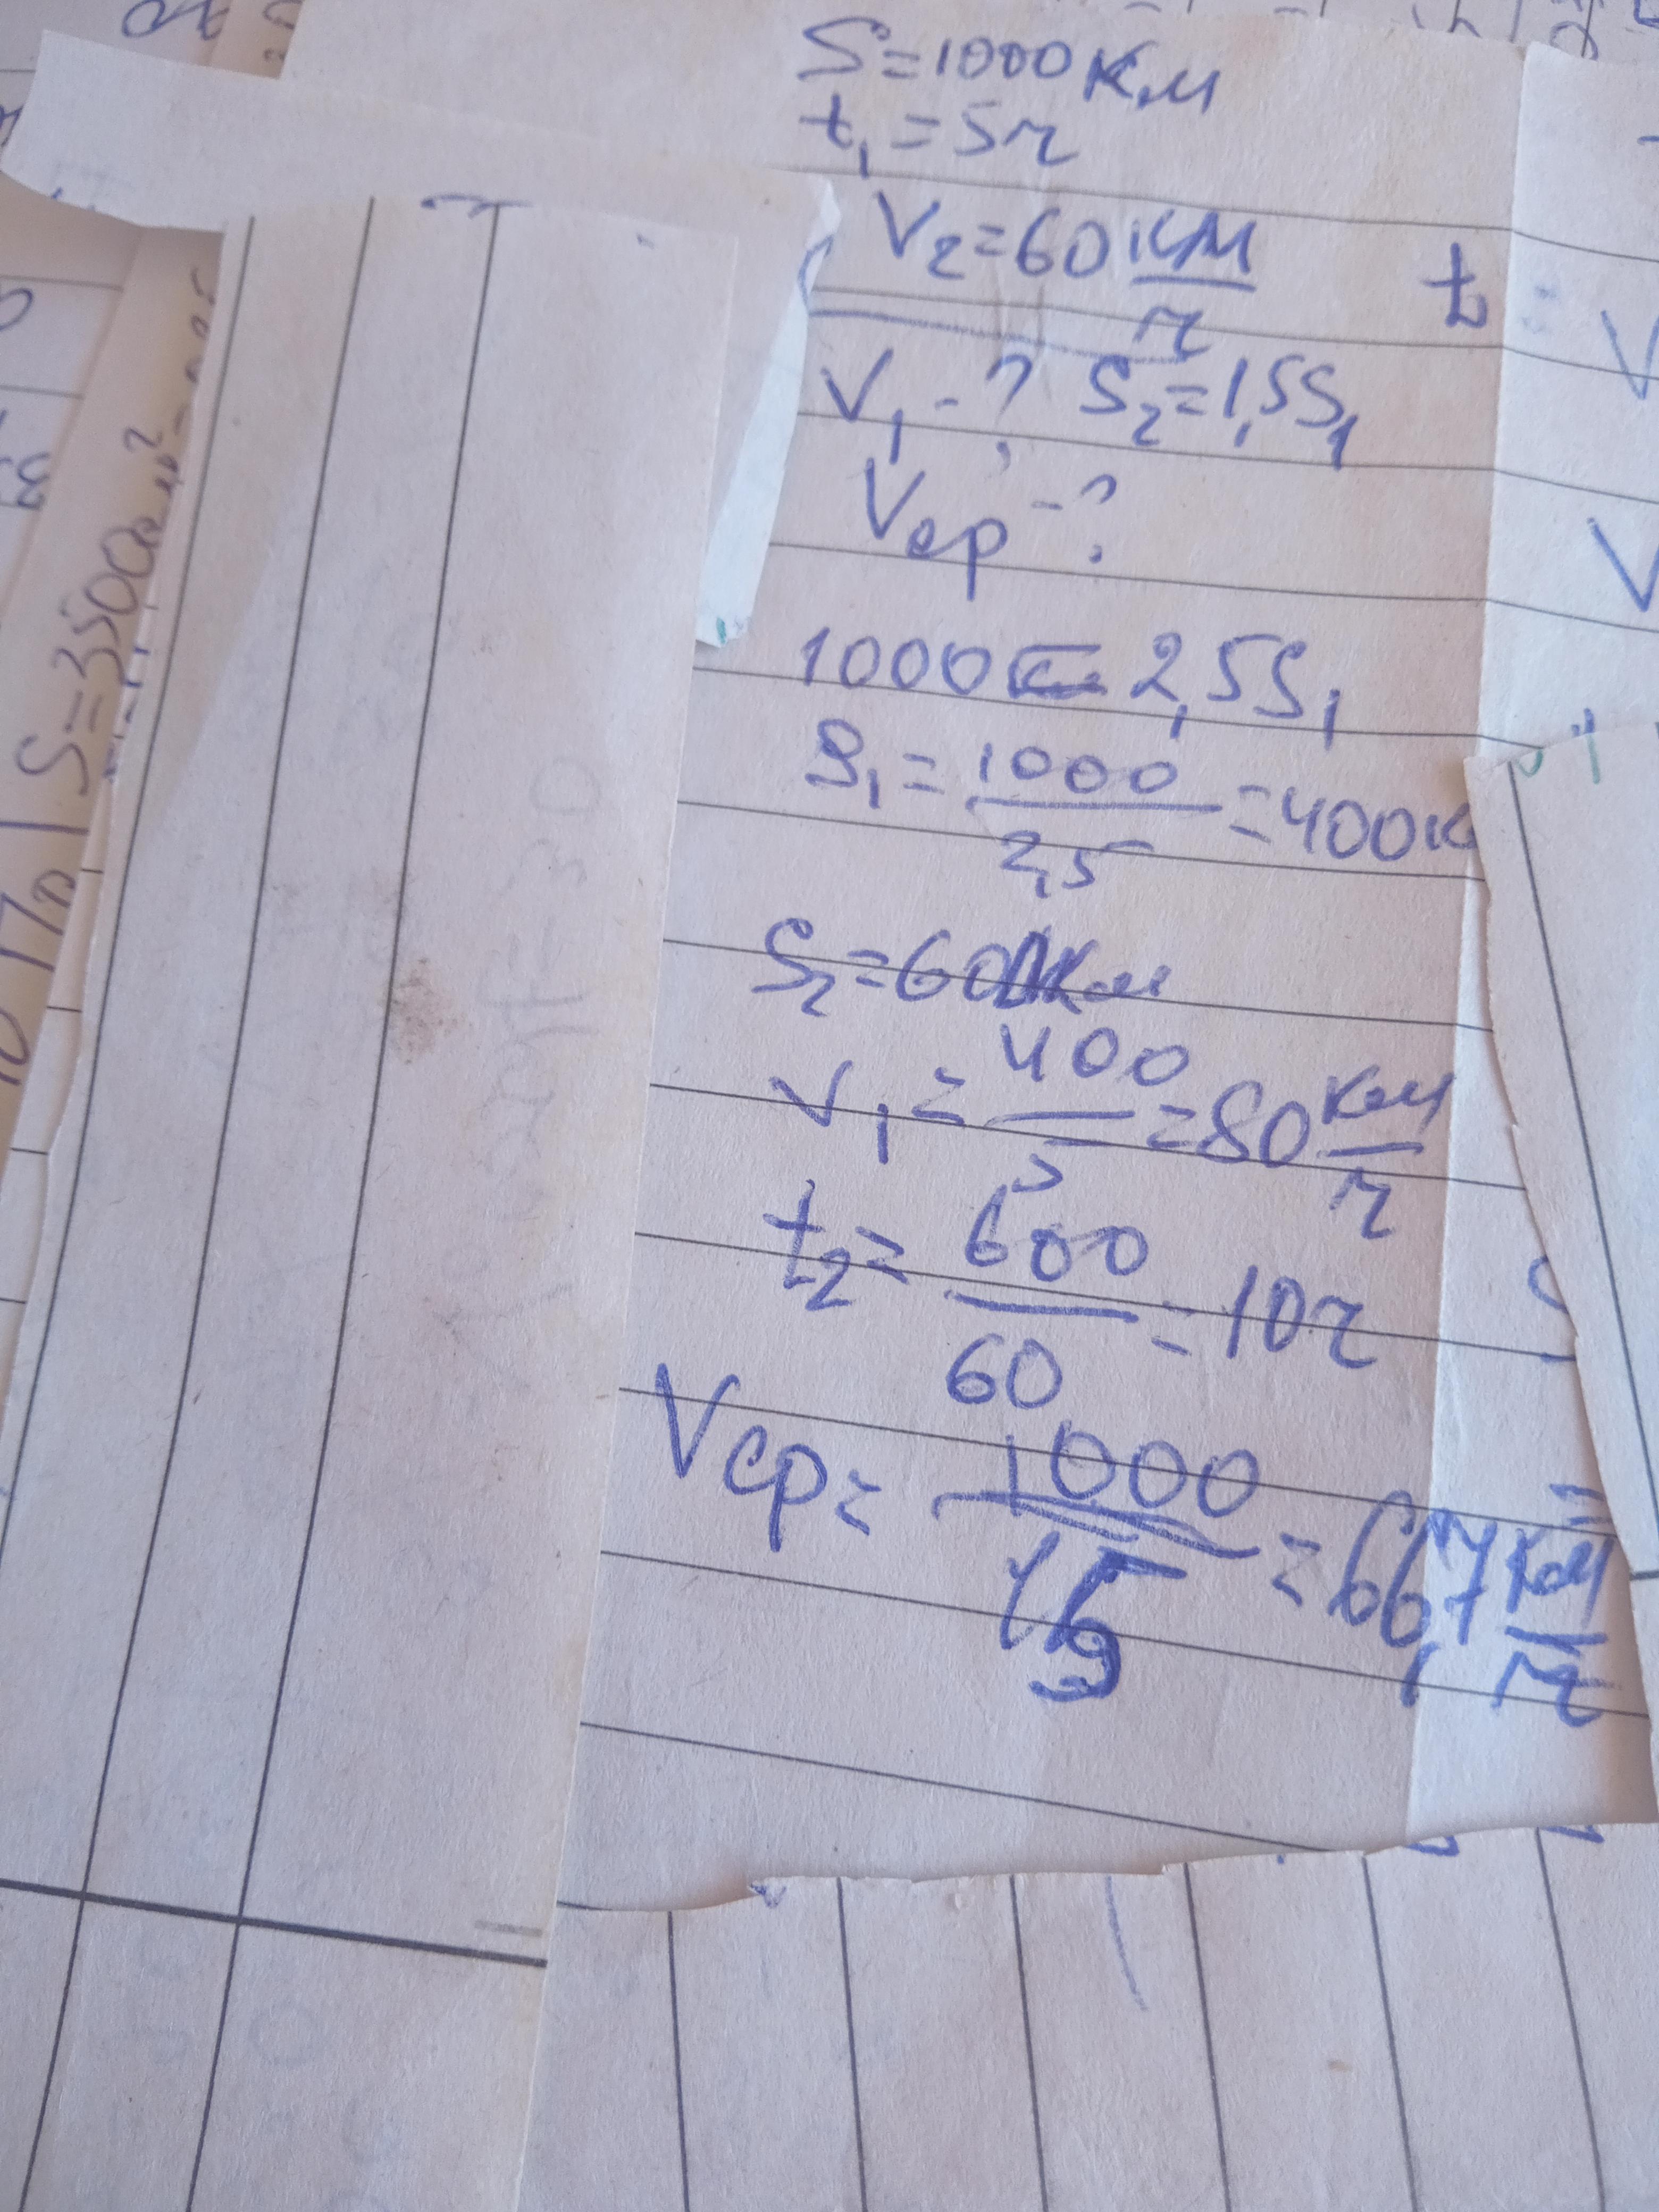 S=1000 км
t₁=5ч
V₂=60 км/ч
t =
V₁-? S₂=1,5S₁
Vср-?
1000 = 2,5S₁
S₁=1000/2,5=400к
S₂=600км
V₁=400/5=80 км/ч
t₂=600/60=10ч
Vср=1000/15=66,7 км/ч
S=3500